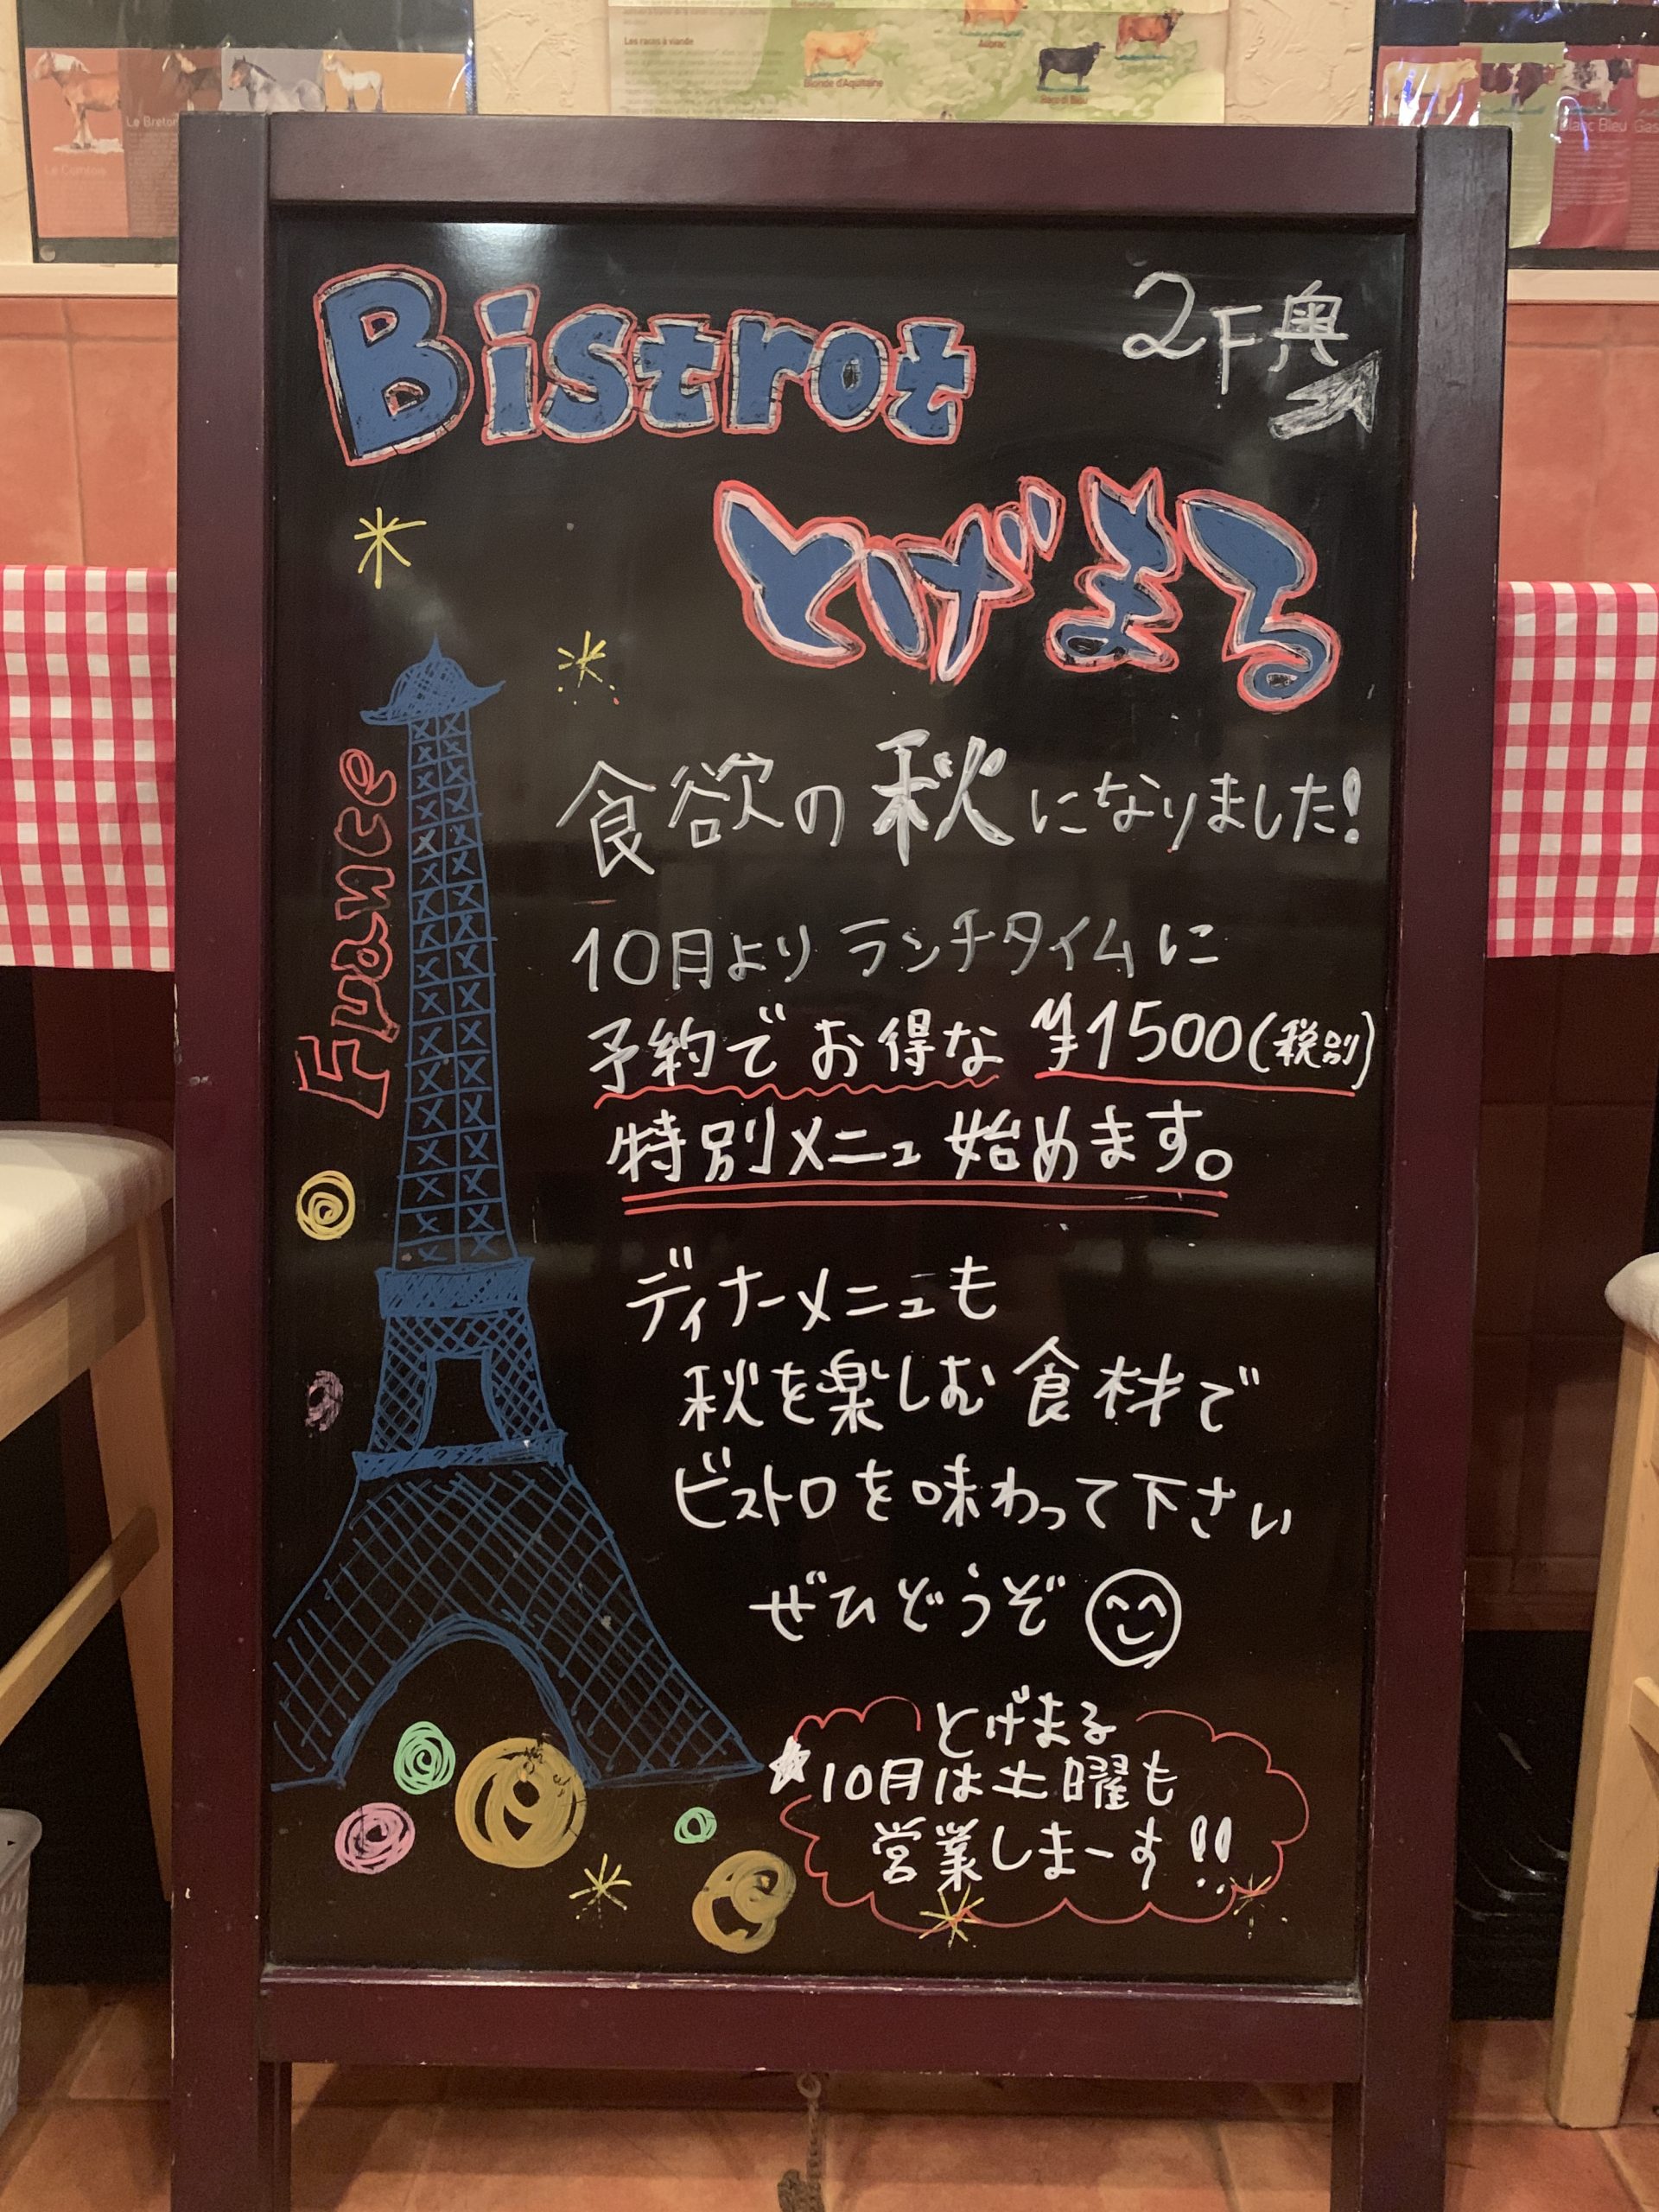 Les races à viande
Blonde d'Aquitaine
Aubrac
Le Breton
Le Comtois
Blanc Bleu
Bistrot
2F奥
とげまる
France
食欲の秋になりました!
10月よりランチタイムに
予約でお得な ¥1500(税別)
特別メニュー始めます。
ディナーメニューも
秋を楽しむ食材で
ビストロを味わって下さい
ぜひどうぞ
とげまる
10月は土曜も
営業しまーす!!